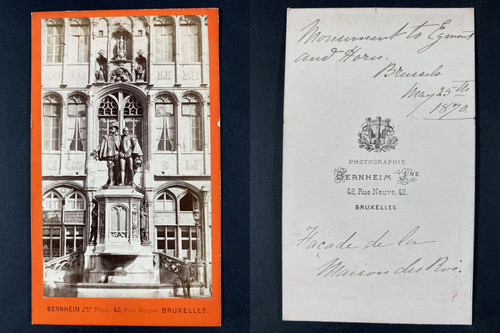 BERNHEIM Jne Phot. 42, Rue Neuve BRUXELLES.
Monument to Egmont
and Horn.
Brussels
May 25th
1870
PHOTOGRAPHIE
BERNHEIM JNE
42, Rue Neuve, 42.
BRUXELLES
Façade de la
Maison des Roi.